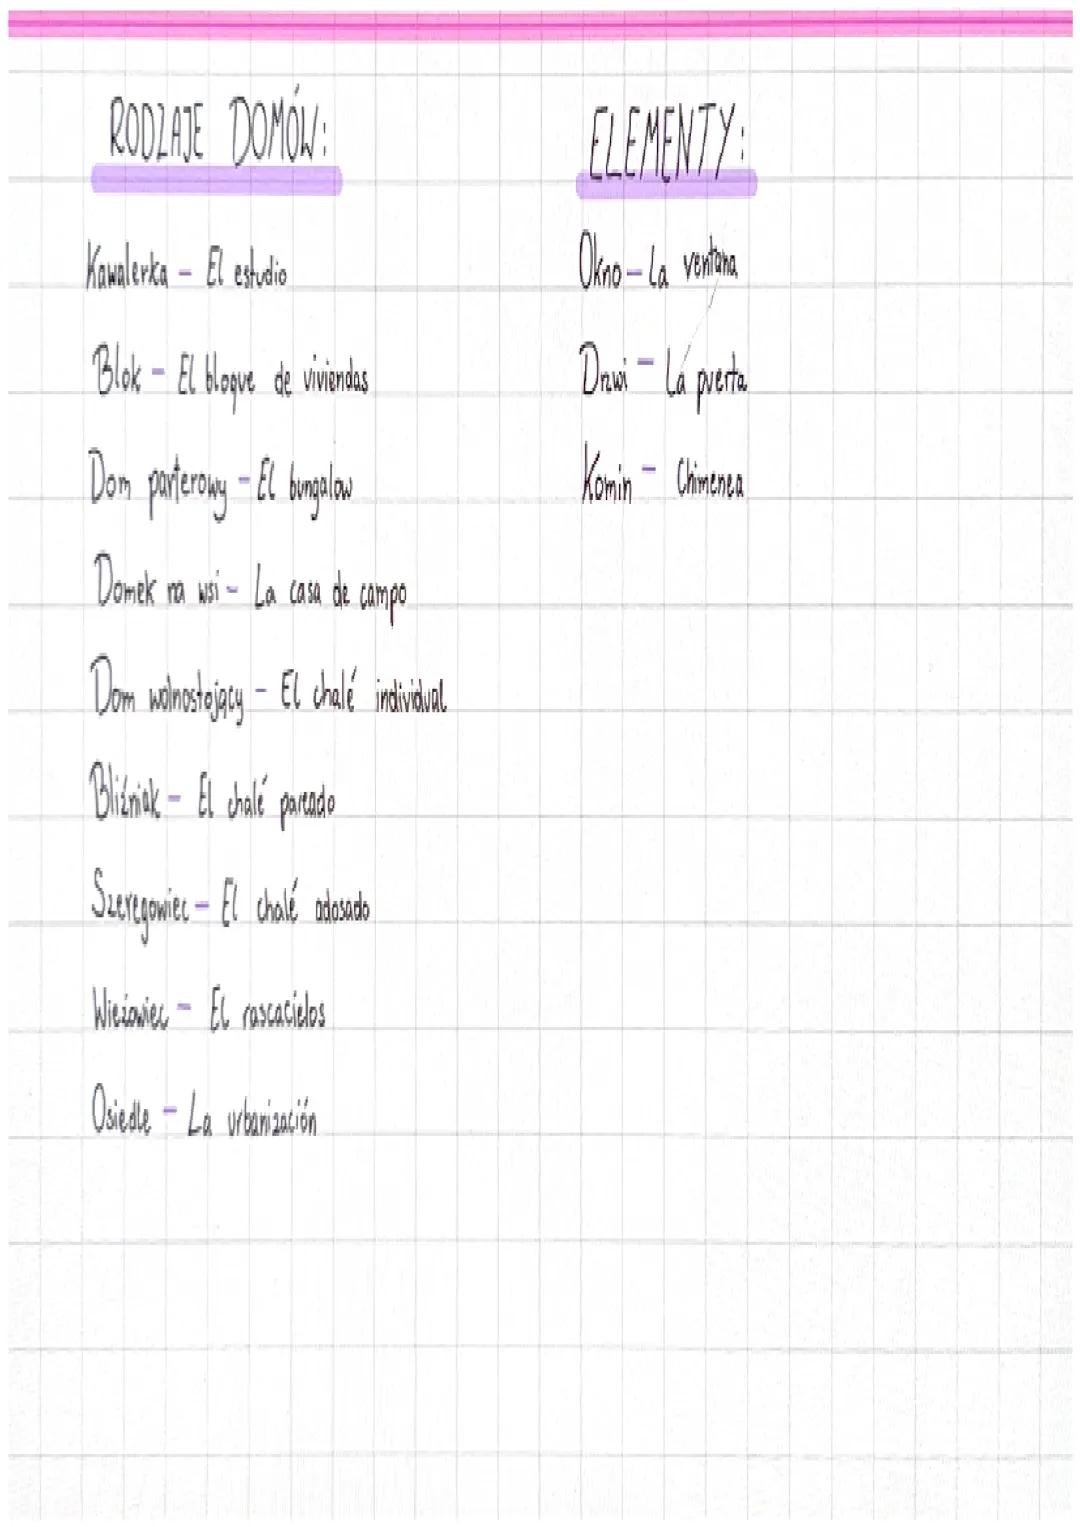 RODZAJE DOMÓW:
Kawalerka - El estudio
Blok - El bloque de viviendas
Dom parterowy - El bungalow
Domek na wsi - La casa de campo
Dom wolnostojący - El chalé individual
Bliźniak - El chalé pareado
Szeregowiec - El chalé adosado
Wieżowiec - El rascacielos
Osiedle - La urbanización
ELEMENTY:
Okno - La ventana
Drzwi - La puerta
Komin - Chimenea